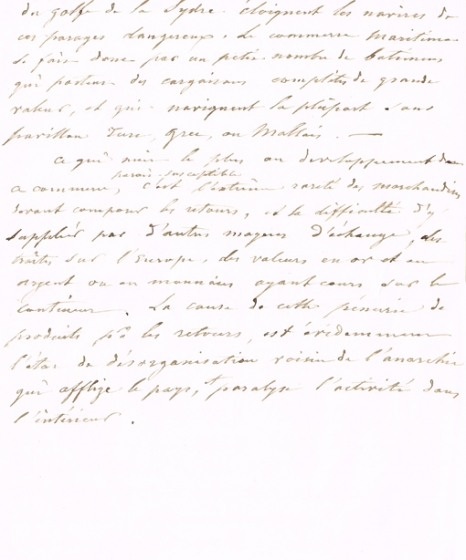 du golfe de la Sydre éloignent les navires de
ces parages dangereux. Le commerce maritime
se fait donc par un petit nombre de batimens
qui portent des cargaisons complètes de grande
valeur, et qui naviguent la plûpart sous
pavillon Turc, Grec, ou Maltais. —
Ce qui nuit le plus au développement dont
ce commerce, paroit susceptible c'est l'extrême rareté des marchandises
devant composer les retours, et la difficulté d'y
suppléer par d'autres moyens d'échange, des
traites sur l'Europe, des valeurs en or et en
argent ou en monnaies ayant cours sur le
continent. La cause de cette pénurie de
produits pr les retours, est évidemment
l'état de désorganisation voisin de l'anarchie
qui afflige le pays, et paralyse l'activité dans
l'intérieur.